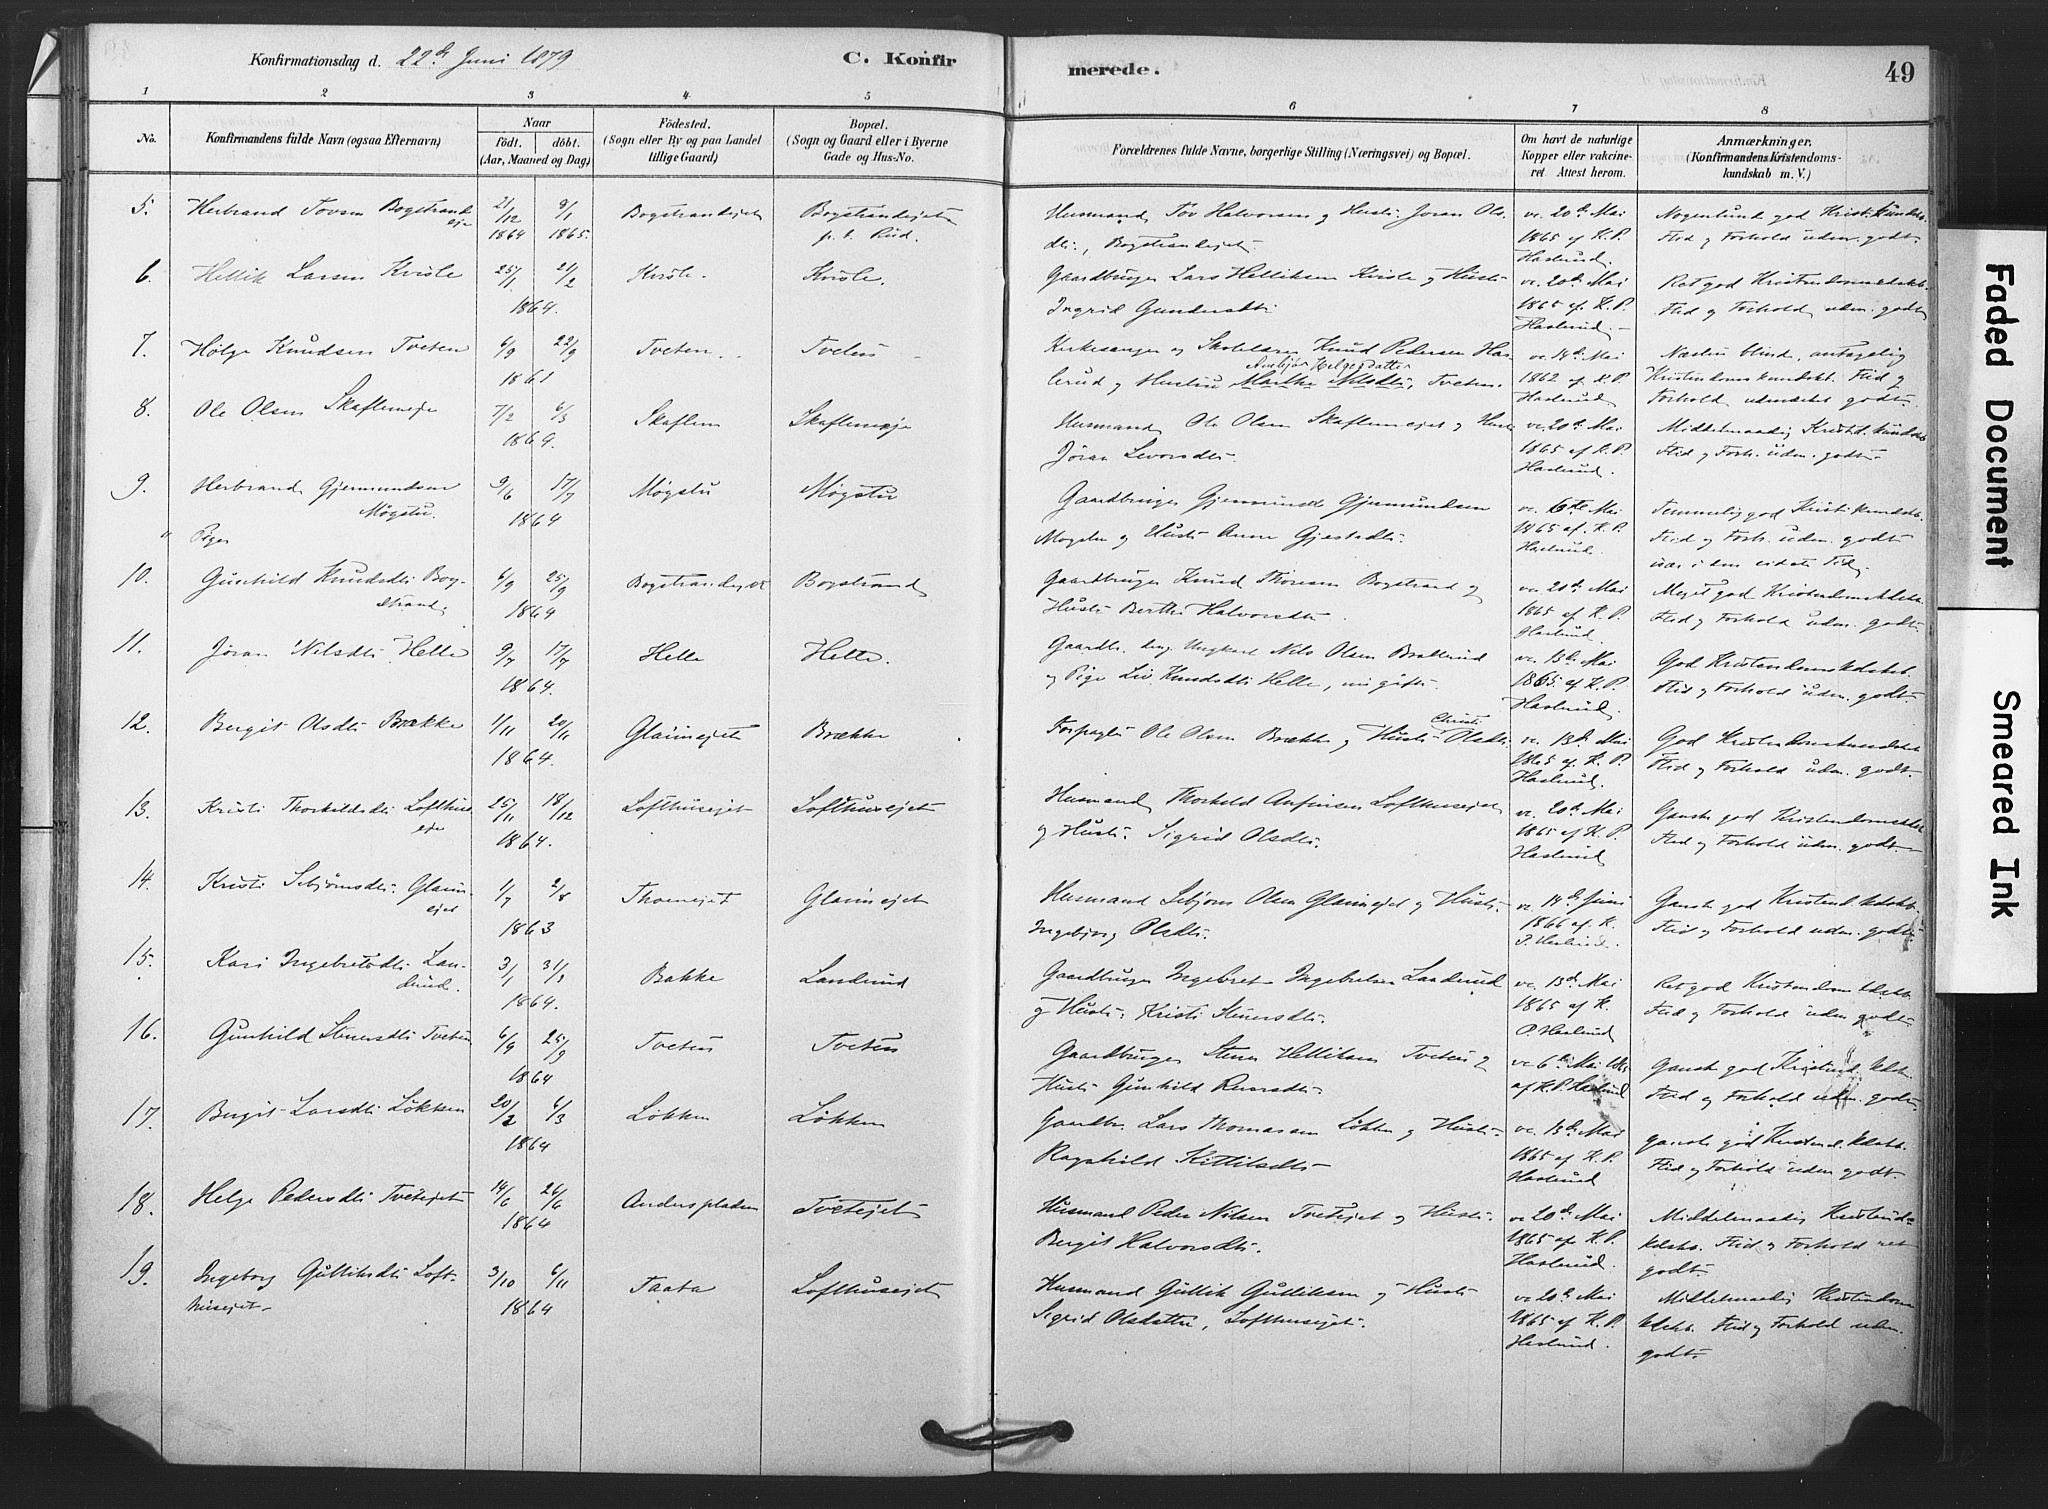 Konfirmationsdag d. 22de Juni 1879
C. Konfirmerede.
49
1 2 3 4 5 6 7 8
No.
Konfirmandens fulde Navn (ogsaa Efternavn)
Naar
födt. döbt.
(Aar, Maaned og Dag)
Födested.
(Sogn eller By og paa Landet
tillige Gaard)
Bopæl.
(Sogn og Gaard eller i Byerne
Gade og Hus-No.
Forældrenes fulde Navne, borgerlige Stilling (Næringsvei) og Bopæl.
Om havt de naturlige
Kopper eller vakcine-
ret Attest herom.
Anmærkninger.
(Konfirmandens Kristendoms-
kundskab m. V.)
5. Herbrand Tovsen Bogstrand
eje
21/12 1864 9/1 1865.
Bogstrandejet
Bogstrandejet
p. t. Rud.
Husmand Tov Halvorsen og Hustr. Joran Ols-
dtr., Bogstrandejet.
vc. 20de Mai
1865 af K.P.
Haslund.
Nogenlunde god Krist. kundsk.
Flid og Forhold udm. godt.
6. Hellik Larsen Kvisle
25/1 21/2
1864.
Kvisle.
Kvisle.
Gaardbruger Lars Helliksen Kvisle og Hustr.
Ingrid Gundersdtr.
vc. 20de Mai
1865 af K.P.
Haslund.
Ret god Kristendomskdskb.
Flid og Forhold udm. godt
7. Helge Knudsen Tveten
6/9 22/9
1861
Tveten.
Tveten
Kirkesanger og Skolelærer Knud Pedersen Has-
Anebjør Helgesdatter
lerud og Hustru Marthe Nilsdtr., Tveten.
vc. 14de Mai
1862 af K.P.
Haslund
Næsten blind, antagelig
Kristendomskundsk. Flid og
Forhold udmærket godt.
8. Ole Olsen Skaflemeje
7/2 6/3
1864.
Skaflem
Skaflemeje
Husmand Ole Olsen Skaflemejet og Hustr.
Jöran Levorsdtr.
vc. 20de Mai
1865 af K.P.
Haslund.
Middelmaadig Kristd. kundsk
Flid og Forh. udm. godt.
9. Herbrand Gjermundsen
Møgstu.
9/6 17/7
1864
Møgstu
Møgstu
Gaardbruger Gjermund Gjermundsen
Møgstu og Hustr. Anne Gjestsdtr.
vc. 6te Mai
1865 af K.P.
Haslund.
Temmelig god Krist. kundsk.
Flid og Forh. udm. godt
" Piger
10. Gunhild Knudsdtr. Bog-
strand
6/9 25/9
1864
Bogstrandejet
Bogstrand
Gaardbruger Knud Thoresen Bogstrand og
Hustr. Berthe Halvorsdtr.
vc. 20de Mai
1865 af K.P.
Haslund.
Meget god Kristendomskdskb.
Flid og Forhold udm. godt.
11. Jöran Nilsdtr. Helle
9/7 17/7
1864.
Helle
Helle.
Gaardbr. Ungkarl Nils Olsen Bratterud
og Pige Liv Knudsdtr. Helle, ugift.
vc. 13de Mai
1865 af K.P.
Haslund.
God Kristendomskdskb.
Flid og Forhold udm. godt.
12. Bergit Olsdtr. Brække
1/11 20/11
1864.
Glaimejet
Brække
Forpagter Ole Olsen Brække og Hustr. Christi Olsdtr.
vc. 13de Mai
1865 af K.P.
Haslund.
God Kristendomskundskb
Flid og Forhold udm. godt.
13. Kristi Thorkildsdtr. Lofthus-
eje
25/11 18/12
1864.
Lofthusejet
Lofthusejet
Husmand Thorkild Anfinsen Lofthusejet
og Hustr. Sigrid Olsdtr.
vc. 20de Mai
1865 af K.P.
Haslund
Ganske god Kristendomskdskb
Flid og Forhold udm. godt.
14. Kristi Sebjørnsdtr. Glaim-
ejet
1/7 2/8
1863
Thomejet
Glaimejet
Husmand Sebjørn Olsen Glaimejet og Hustr.
Ingebjørg Olsdtr.
vc. 14de Juni
1866 af K.
P. Haslund.
Ganske god Kristend. kdskb.
Flid og Forhold udm. godt.
15. Kari Ingebretsdtr. Lan-
derud.
3/1 31/1
1864.
Bakke
Landerud
Gaardbruger Ingebret Ingebretsen Landerud
og Hustr. Kristi Stenersdtr.
vc. 13de Mai
1865 af K.
P. Haslund
Ret god Kristendomskdskb.
Flid og Forhold udm. godt.
16. Gunhild Stenersdtr. Tveten
6/9 25/9
1864
Tveten
Tveten
Gaardbruger Stener Helliksen Tveten og
Hustr. Gunhild
vc 6te Mai
af K.P. Haslund
Ganske god Kristend. kdskb.
Flid og Forhold udm. godt.
17. Bergit Larsdtr. Løkken
20/2 6/3
1864
Løkken
Løkken
Gaardbr. Lars Thomassen Løkken og Hustr.
Ragnhild Kittilsdtr.
vc. 13de Mai
1865 af K.P.
Haslund
Ganske god Kristend. kdskb.
Flid og Forhold udm godt.
18. Helge Pedersdtr. Tvetejet
14/6 26/6
1864
Anderspladsen
Tvetejet
Husmand Peder Nilsen Tvetejet og Hustr.
Bergit Halvorsdtr.
vc 20de Mai
1865 af K.P.
Haslund.
Middelmaadig Kristend-
kdskb. Flid og Forhold ret
godt.
19. Ingeborg Gulliksdtr. Loft-
husejet
3/10 6/11
1864
Taata
Lofthusejet
Husmand Gullik Gulliksen og Hustr.
Sigrid Olsdatter, Lofthusejet.
vc 20de Mai
1865 af K.P.
Haslund.
Middelmaadig Kristendoms
kdskb. Flid og Forhold udm.
godt.
Faded Document
Smeared Ink